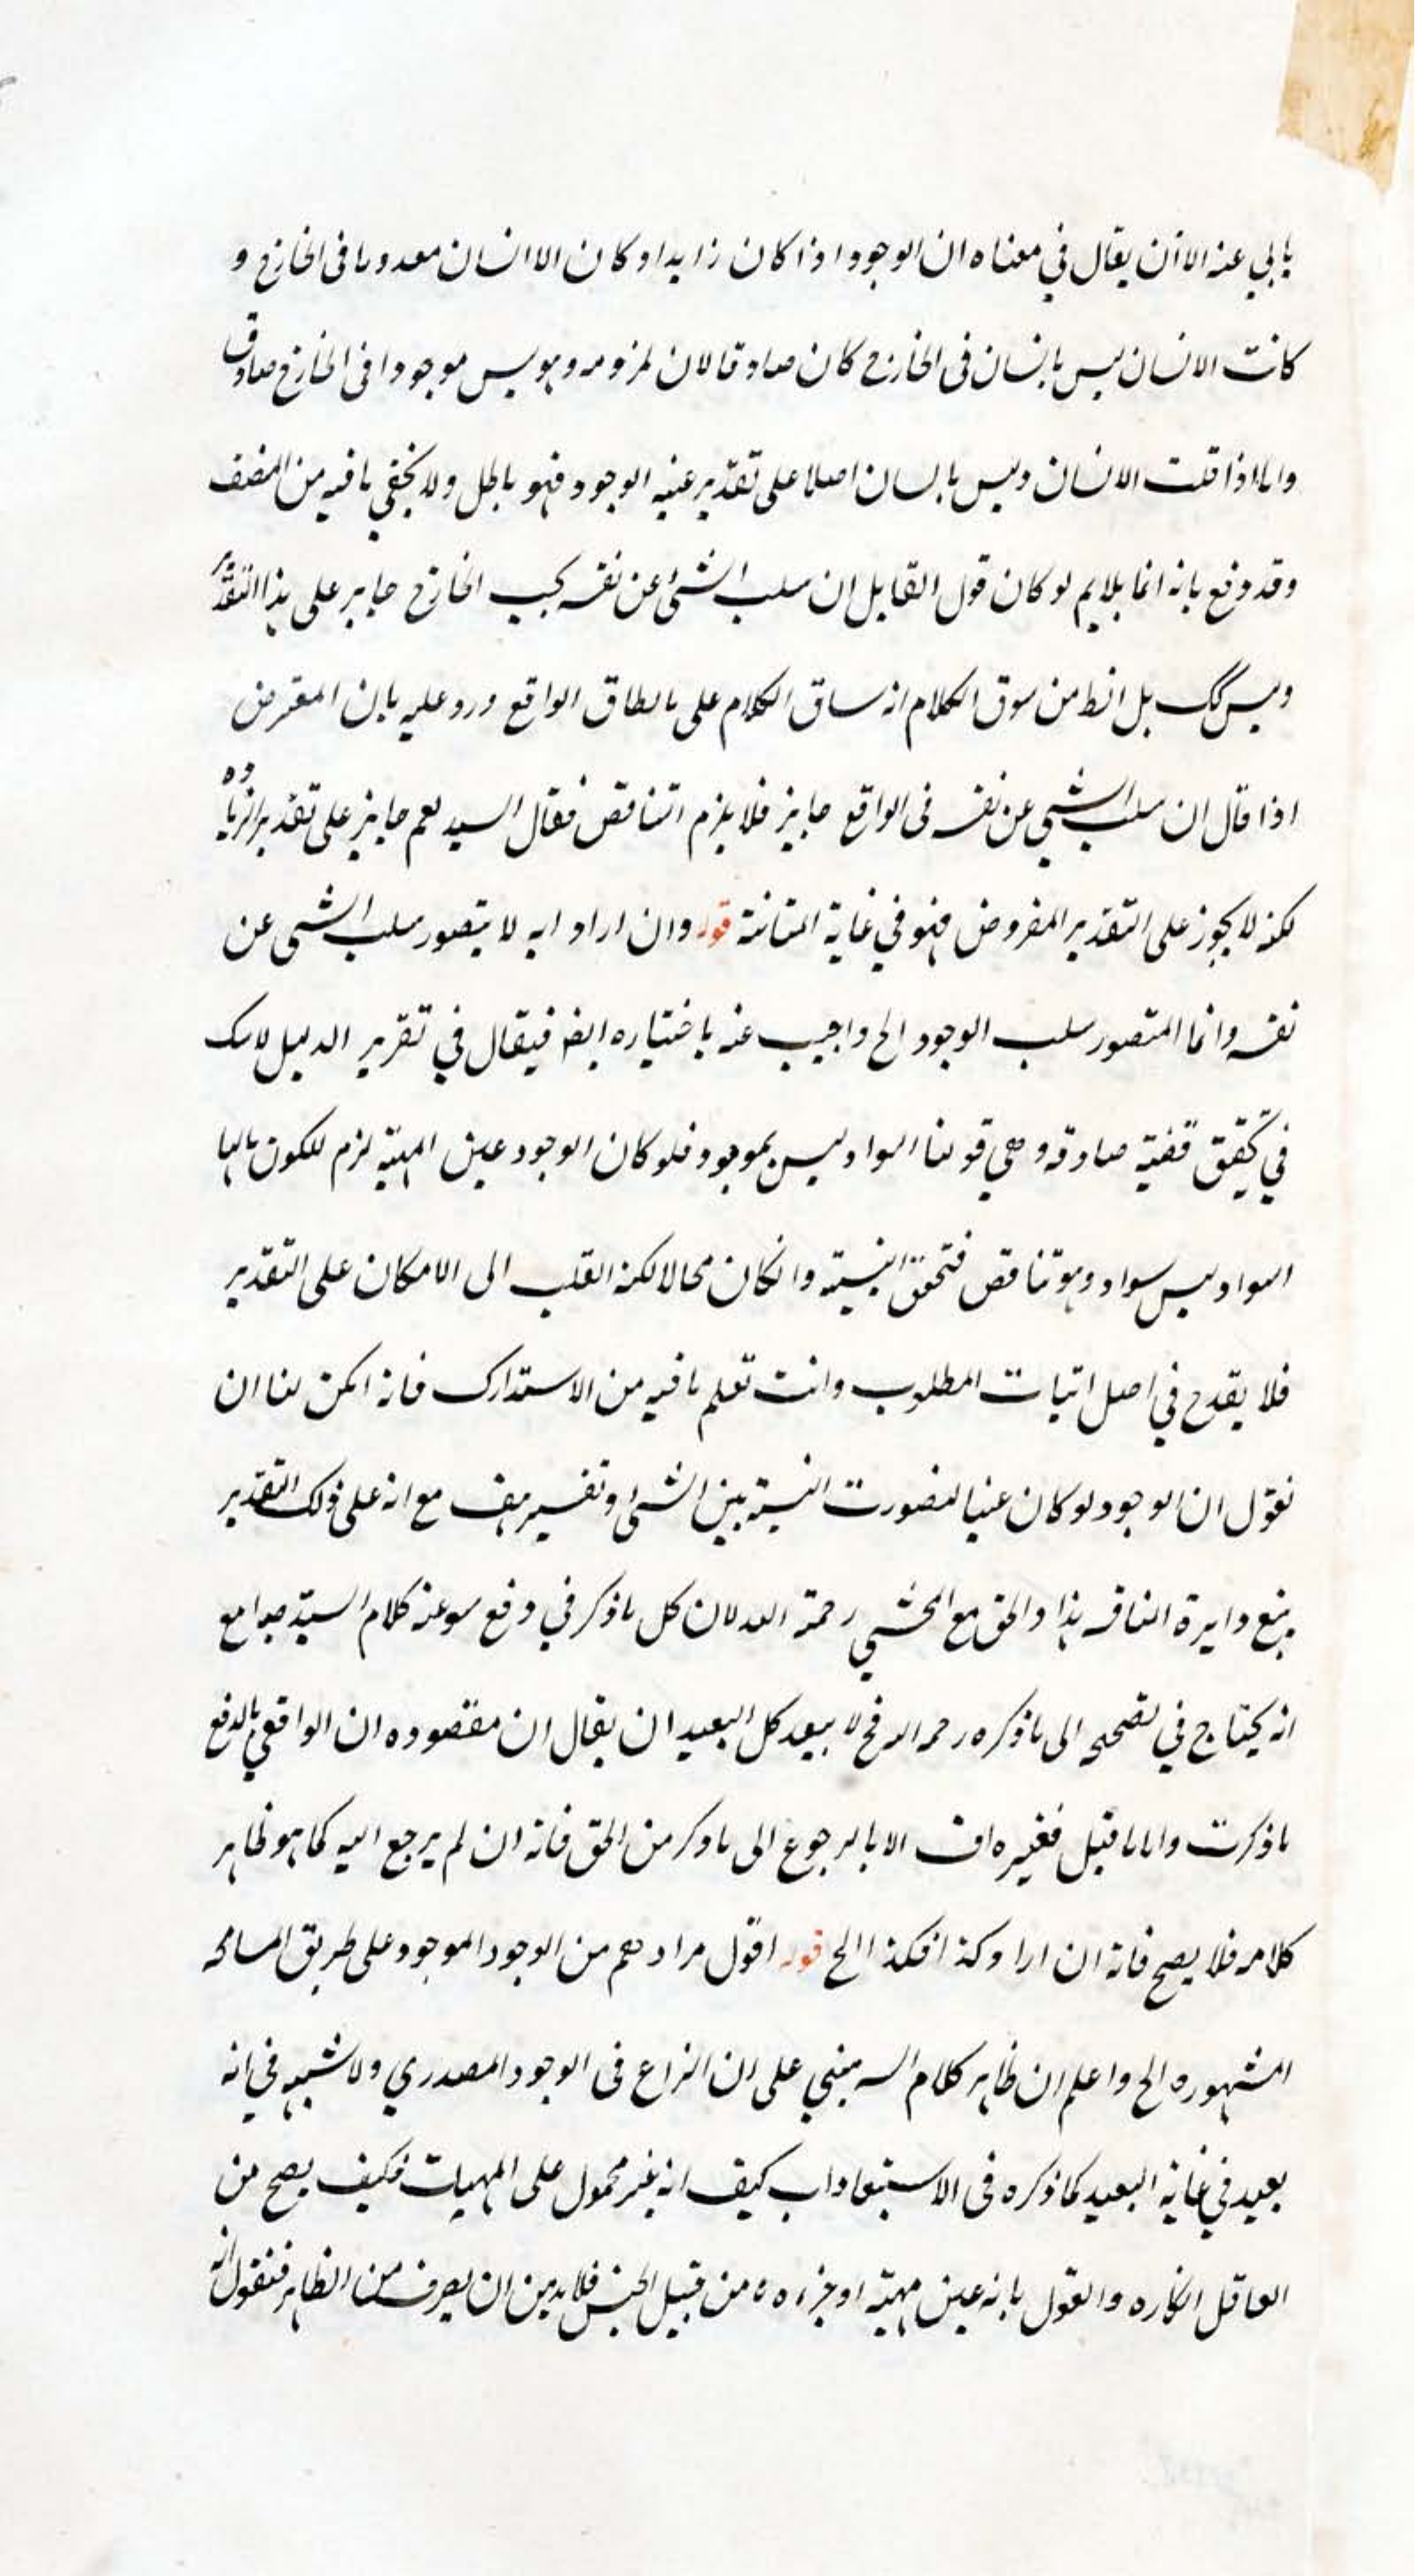 يابى عنه الا ان يقال فى معناه ان الوجود اذا كان زايدا و كان الانسان معدوما فى الخارج و
كانت الانسان ليس بانسان فى الخارج كان صادقا لان لمزومه وهو ليس موجودا فى الخارج صادق
واما اذا قلت الانسان وليس بانسان اصلا على تقدير عنيه الوجود فهو باطل ولا يخفى ما فيه من الضعف
وقد دفع بانه انما يلايم لو كان قول القايل ان سلب الشئ عن نفسه بحسب الخارج جايز على هذا التقدير
وليس كك بل الظ من سوق الكلام انه ساق الكلام على ما يطاق الواقع ورد عليه بان المعترض
اذا قال ان سلب الشى عن نفسه فى الواقع جايز فلا يلزم التناقض فقال السيد نعم جايز على تقدير الزيادة
لكنه لا يجوز على التقدير المفروض فهو في غاية المتانة قوله وان اراد انه لا يتصور سلب الشى عن
نفسه وانما المتصور سلب الوجود الخ واجيب عنه باختياره ايضا فيقال في تقرير الدليل لاشك
في تحقق قضية صادقه وهي قولنا السواد ليس بموجود فلو كان الوجود عين المهية لزم للكون مالها
السواد ليس سواد وهو تناقض فتحقق النسبة وانكان محالا لكنه انقلب الى الامكان على التقدير
فلا يقدح في اصل اثبات المطلوب وانت تعلم ما فيه من الاستدارك فانه امكن لنا ان
نقول ان الوجود لو كان عينا لتصورت النسبة بين الشئ ونفسه هف مع انه على ذلك التقدير
يتع دايرة المناقشه هذا والحق مع المحشى رحمة الله لان كل ما ذكر في دفع سوعنه كلام السيد جوا مع
انه يحتاج في تصحيحه الى ما ذكره رحمه الله فح لا يبعد كل البعيد ان يقال ان مقصوده ان الواقعي بالدفع
ما ذكرت واما ما قيل فغيره اف الا بالرجوع الى ما ذكر من الحق فانه ان لم يرجع اليه كما هو ظاهر
كلامه فلا يصح فانه ان اراد كذا فكذا الخ قوله اقول مرادهم من الوجود الموجود على طريق المسامحه
المشهوره الخ واعلم ان ظاهر كلام السيد مبني على ان النزاع فى الوجود المصدري ولا شبهه في انه
بعيد في غاية البعيد كما ذكره فى الاستبعاداب كيف انه غير محمول على المهيات فكيف يصح من
العاقل انكاره والقول بانه عين مهيته او جزءه من قبيل الجنس فلابد من ان يصرف من الظاهر فنقول انه